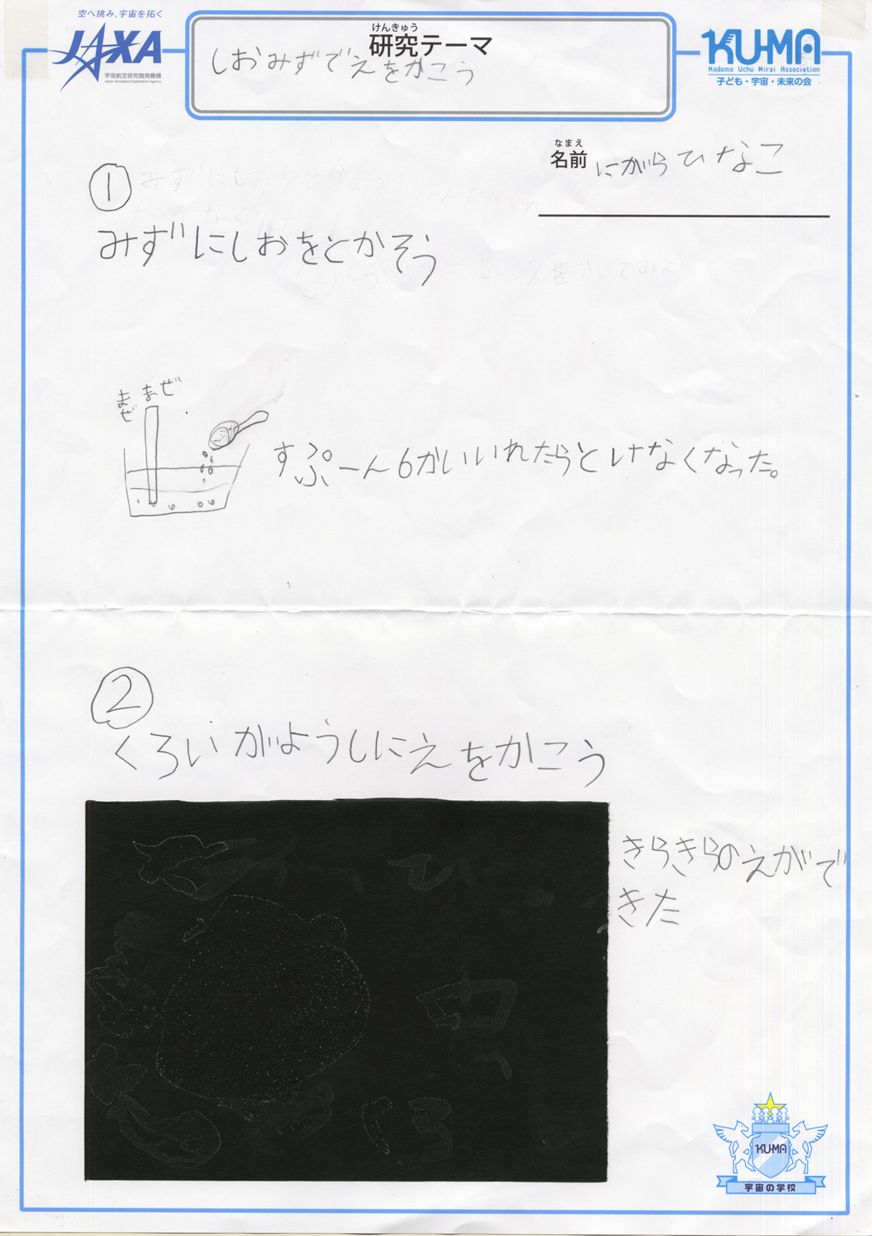 空へ挑み、宇宙を拓く
JAXA
宇宙航空研究開発機構
Japan Aerospace Exploration Agency
けんきゅう
研究テーマ
しおみずでえをかこう
KU-MA
Kodomo Uchu Mirai Association
子ども・宇宙・未来の会
なまえ
名前 にがらひなこ
①
みずにしおをとかそう
まぜ まぜ
すぷーん6かいいれたらとけなくなった。
②
くろいがようしにえをかこう
きらきらのえがで
きた
KU-MA
宇宙の学校